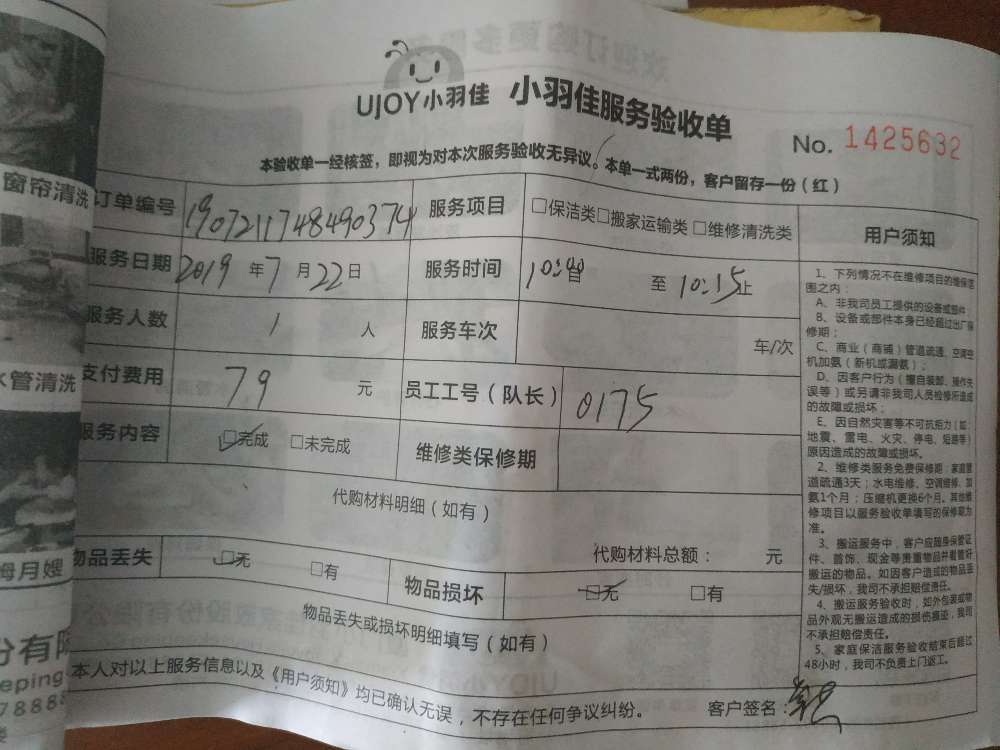 UJOY小羽佳 小羽佳服务验收单
No. 1425632
本验收单一经核签，即视为对本次服务验收无异议。本单一式两份，客户留存一份（红）
订单编号 190721174849037 4 服务项目 □保洁类□搬家运输类 □维修清洗类
服务日期 2019 年 7 月 22 日 服务时间 10:00 自 至 10:15 止
服务人数 1 人 服务车次 车/次
支付费用 79 元 员工工号（队长） 0175
服务内容 □完成 □未完成 维修类保修期
代购材料明细（如有）
代购材料总额： 元
物品丢失 □无 □有 物品损坏 □无 □有
物品丢失或损坏明细填写（如有）
本人对以上服务信息以及《用户须知》均已确认无误，不存在任何争议纠纷。 客户签名：
用户须知
1、下列情况不在维修项目的维保范
围之内：
A、非我司员工提供的设备或部件；
B、设备或部件本身已经超过出厂保
修期；
C、商业（商铺）管道疏通、空调空
机加氨（新机或漏氨）；
D、因客户行为（擅自装卸、操作失
误等）或另请非我司人员检修所造成
的故障或损坏；
E、因自然灾害等不可抗拒力（如：
地震、雷电、火灾、停电、短路等）
原因造成的故障或损坏。
2、维修类服务免费保修期：家庭管
道疏通3天；水电维修、空调维修、加
氨1个月；压缩机更换6个月。其他维
修项目以服务验收单填写的保修期为
准。
3、搬运服务中，客户应随身保管证
件、首饰、现金等贵重物品并看管好
搬运的物品。如因客户造成的物品丢
失/损坏，我司不承担赔偿责任。
4、搬运服务验收时，如外包装或物
品外观无搬运造成的损伤痕迹，我司
不承担赔偿责任。
5、家庭保洁服务验收结束后超过
48小时，我司不负责上门返工。
窗帘清洗
水管清洗
姆月嫂
份有限
eping
78888
楼